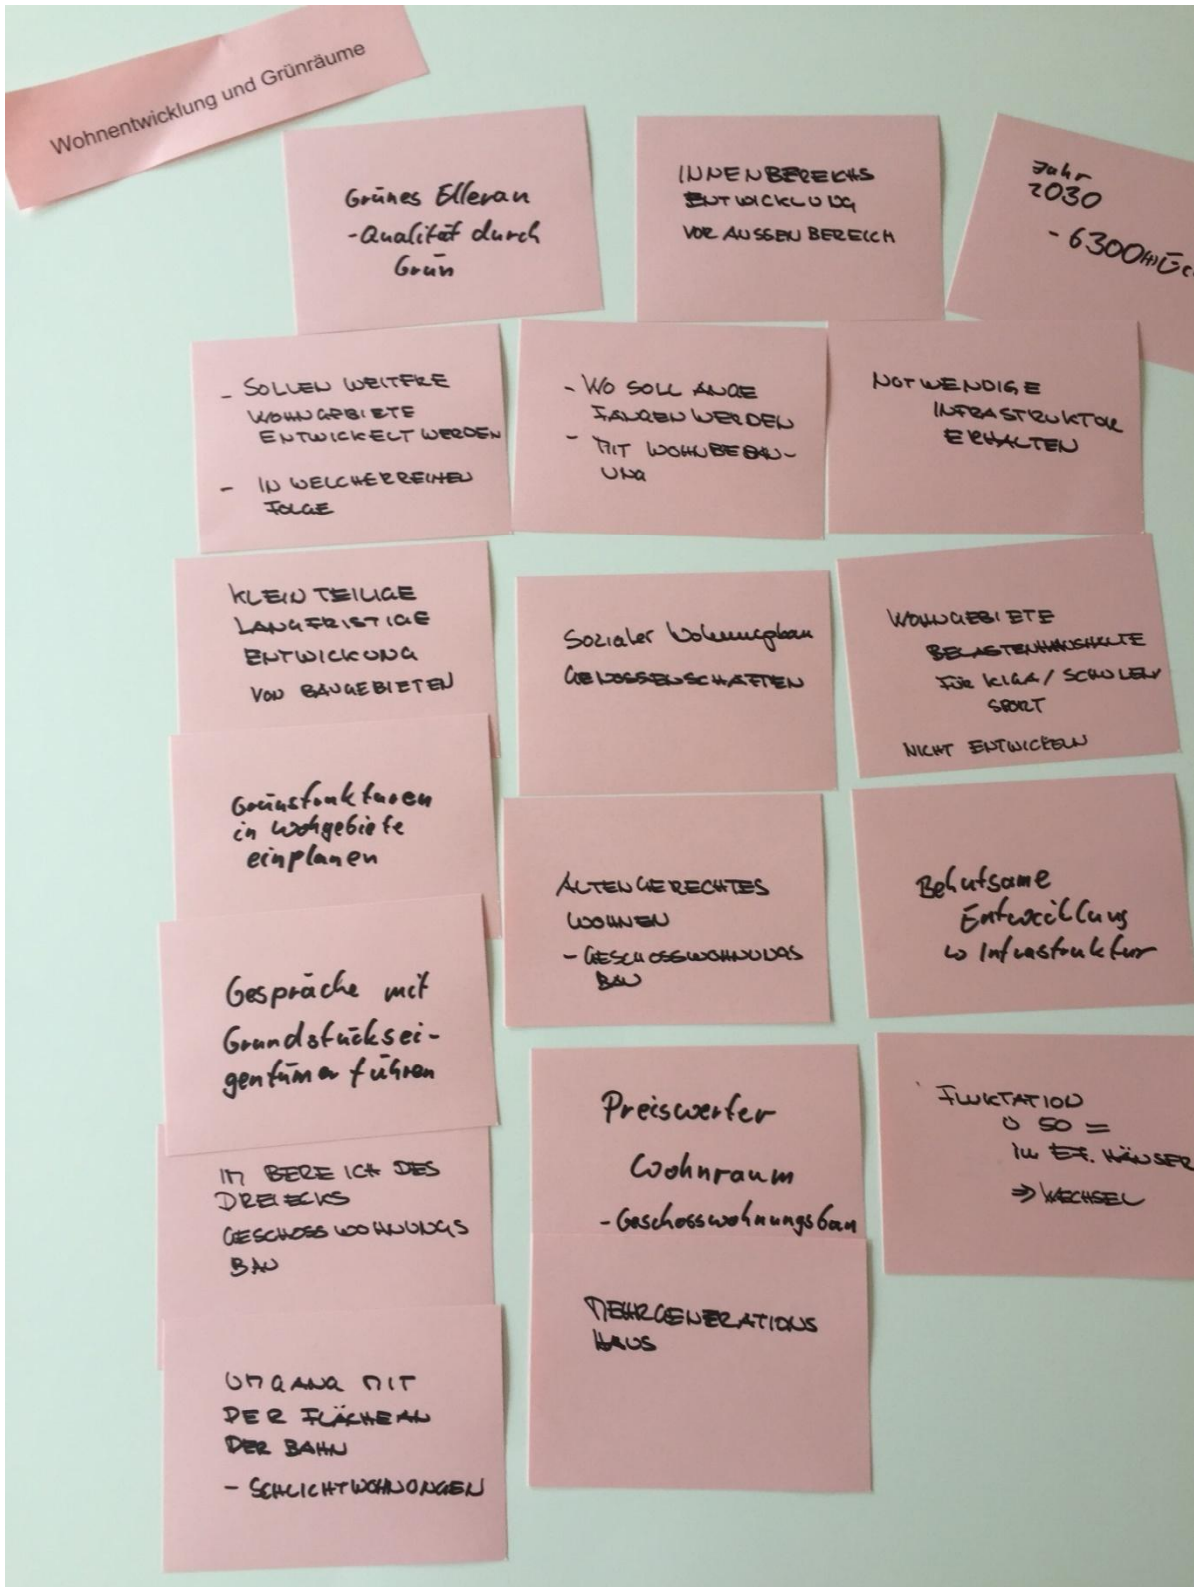 Wohnentwicklung und Grünräume
Grünes Ellerau
- Qualität durch
Grün
INNENBEREICHS
ENTWICKLUNG
VOR AUSSENBEREICH
Jahr
2030
- 6300
- SOLLEN WEITERE
WOHNGEBIETE
ENTWICKELT WERDEN
- IN WELCHER REIHEN
FOLGE
- WO SOLL ANGE
FANGEN WERDEN
- MIT WOHNBEBAU-
UNG
NOTWENDIGE
INFRASTRUKTUR
ERHALTEN
KLEINTEILIGE
LANGFRISTIGE
ENTWICKUNG
VON BAUGEBIETEN
Sozialer Wohnungsbau
GENOSSENSCHAFTEN
WOHNGEBIETE
FÜR KIGA / SCHULEN/
SPORT
NICHT ENTWICKELN
Grünstrukturen
in Wohgebiete
einplanen
ALTENGERECHTES
WOHNEN
- GESCHOSSWOHNUNGS
BAU
Behutsame
Entwicklung
Infrastruktur
Gespräche mit
Grundstücksei-
gentümer führen
Preiswerter
Wohnraum
- Geschosswohnungsbau
FLUKTATION
Ü 50 =
in EF. HÄUSER
⇒ WECHSEL
IM BEREICH DES
DREIECKS
GESCHOSSWOHNUNGS
BAU
MEHRGENERATIONS
HAUS
UMGANG MIT
DER FLÄCHE AN
DER BAHN
- SCHLICHTWOHNUNGEN